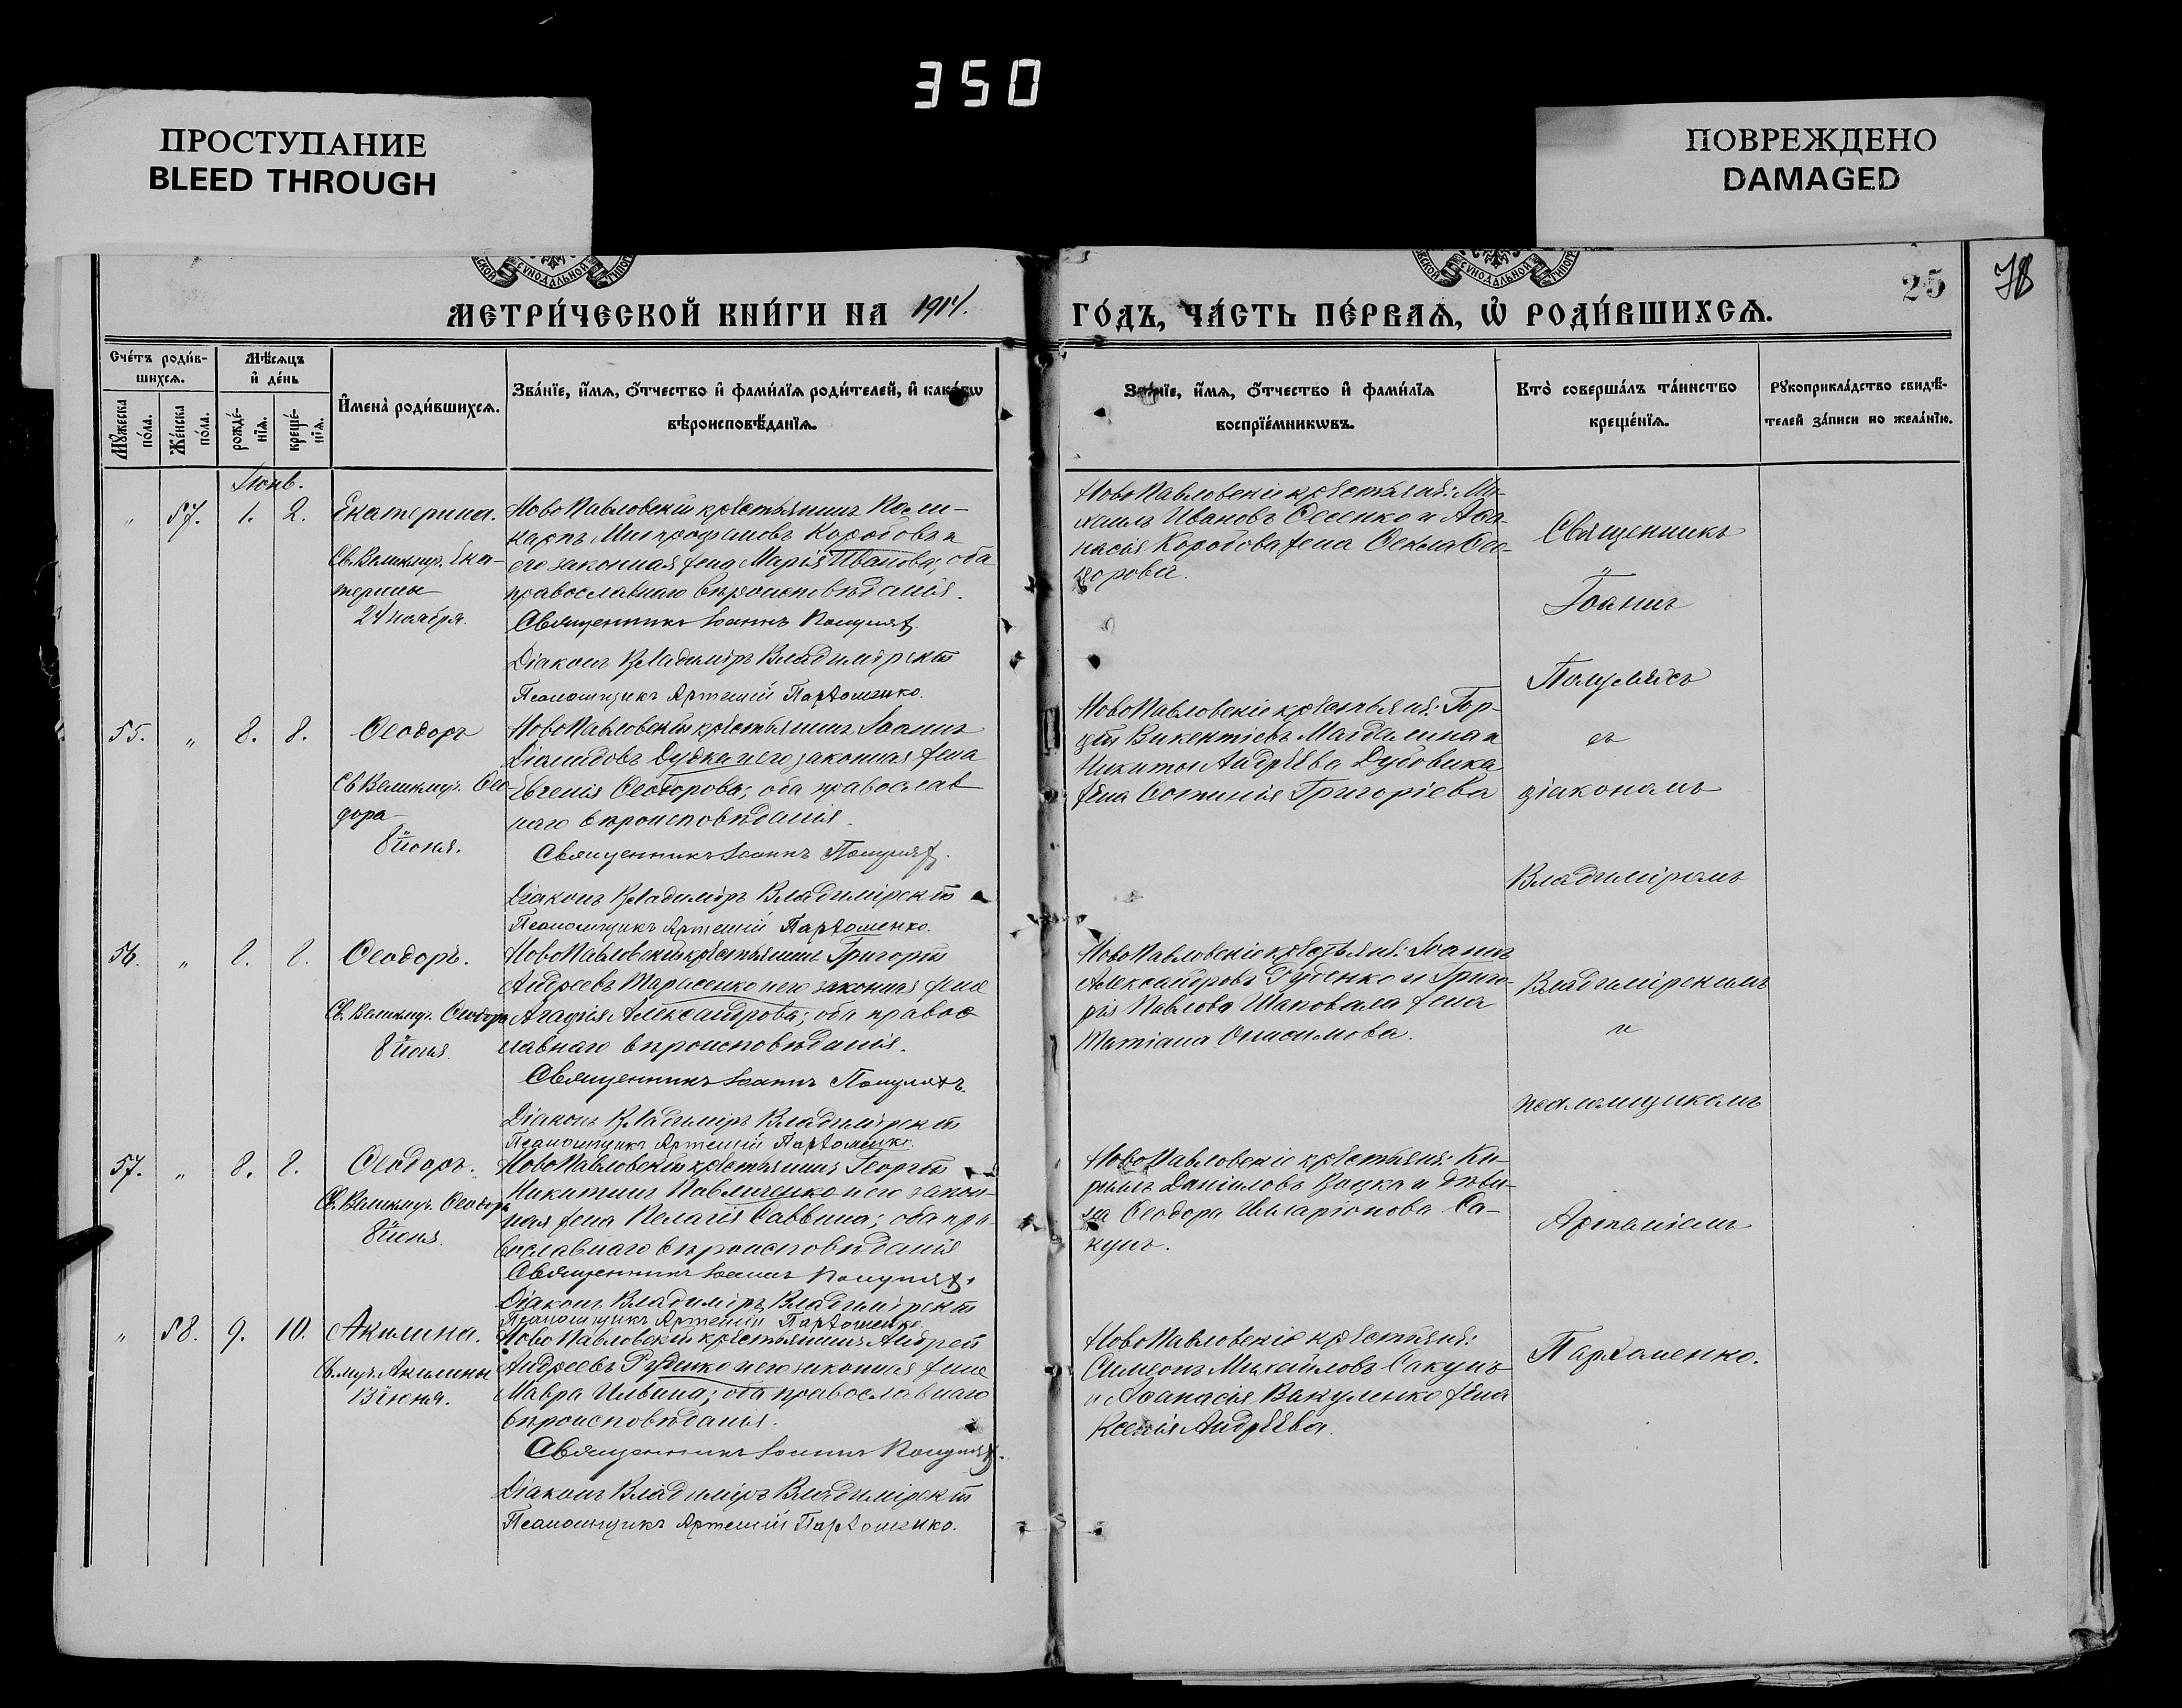 350
ПРОСТУПАНИЕ
BLEED THROUGH
ПОВРЕЖДЕНО
DAMAGED
25
78
МЕТРИ́ЧЕСКОЙ КНИ́ГИ НА 1914.
ГО́ДЪ, ЧА́СТЬ ПЕ́РВАѦ, Ѡ҆ РОДИ́ВШИХСѦ.
Счéтъ роди́в-
шихсѧ.
Мѣ́сѧцъ
и҆ де́нь
Мꙋ́жеска
по́ла.
Же́нска
по́ла.
рожде́-
нїѧ.
креще́-
нїѧ.
И҆мена̀ роди́вшихсѧ.
Зва́нїе, и҆́мѧ, ѻ҆́тчество и҆ фами́лїѧ роди́телей, и҆ како́гѡ
вѣроисповѣ́данїѧ.
Зва́нїе, и҆́мѧ, ѻ҆́тчество и҆ фами́лїѧ
воспрїе́мникѡвъ.
Кто̀ соверша́лъ та́инство
креще́нїѧ.
Рꙋкоприкла́дство свидѣ́-
телей за́писи по жела́нїю.
Іюнь.
" 57. 1. 2. Екатерина.
Св. Великмуч. Ека-
терины
24 ноября.
НовоПавловскій крестьянинъ Поли-
карпъ Митрофановъ Коробовъ и
его законная жена Марія Иванова; оба
православнаго вѣроисповѣданія.
Священникъ Іоаннъ Полулях
Діаконъ Владиміръ Владимірскій
Псаломщикъ Артемій Пархоменко.
НовоПавловскіе крестьяне: Ми-
хаилъ Ивановъ Осенко и Афа-
насія Коробова жена Фекла Фео-
дорова.
55. " 8. 8. Ѳеодоръ
Св Великмуч. Ѳео-
дора
8 іюня.
НовоПавловскій крестьянинъ Іоаннъ
Діамидовъ Дудка и его законная жена
Евгенія Ѳеодорова; оба православ
наго вѣроисповѣданія.
Священникъ Іоаннъ Полулях.
Діаконъ Владиміръ Владимірскій
Псаломщикъ Артемій Пархоменко.
НовоПавловскіе крестьяне: Гор-
дій Викентіевъ Магдалина и
Никиты Андреева Дубовика
жена Фотинія Григоріева
56. " 8. 8. Ѳеодоръ.
Св. Великмуч. Ѳеодора
8 іюня.
НовоПавловскій крестьянинъ Григорій
Андреевъ Тарасенко и его законная жена
Агафія Александрова; оба правос
лавнаго вѣроисповѣданія.
Священникъ Іоаннъ Полуляхъ.
Діаконъ Владиміръ Владимірскій
Псаломщикъ Артемій Пархоменко.
НовоПавловскіе крестьяне: Іоаннъ
Александровъ Руденко и Григо-
рія Павлова Шаповала жена
Татіана Онисимова.
57. " 8. 8. Ѳеодоръ.
Св. Великмуч. Ѳеодора
8 іюня.
НовоПавловскій крестьянинъ Георгій
Никитинъ Павличенко и его закон-
ная жена Пелагія Саввина; оба пра-
вославнаго вѣроисповѣданія
Священникъ Іоаннъ Полулях.
Діаконъ Владиміръ Владимірскій
Псаломщикъ Артемій Пархоменко.
НовоПавловскіе крестьяне: Ки-
риллъ Даніиловъ Вацка и дѣви-
ца Ѳеодора Иларіонова Са-
кунъ.
" 58. 9. 10. Акилина.
Св. муч. Акилины
13 іюня.
НовоПавловскій крестьянинъ Андрей
Андреевъ Руденко и его законная жена
Мавра Ильина; оба православнаго
вѣроисповѣданія.
Священникъ Іоаннъ Полулях.
Діаконъ Владиміръ Владимірскій
Псаломщикъ Артемій Пархоменко.
НовоПавловскіе крестьяне:
Симеонъ Михайловъ Сакунъ
и Афанасія Вакуленко жена
Ксенія Андреева.
Священникъ
Іоаннъ
Полуляхъ
съ
діакономъ
Владиміромъ
Владимірскимъ
и
псаломщикомъ
Артеміемъ
Пархоменко.